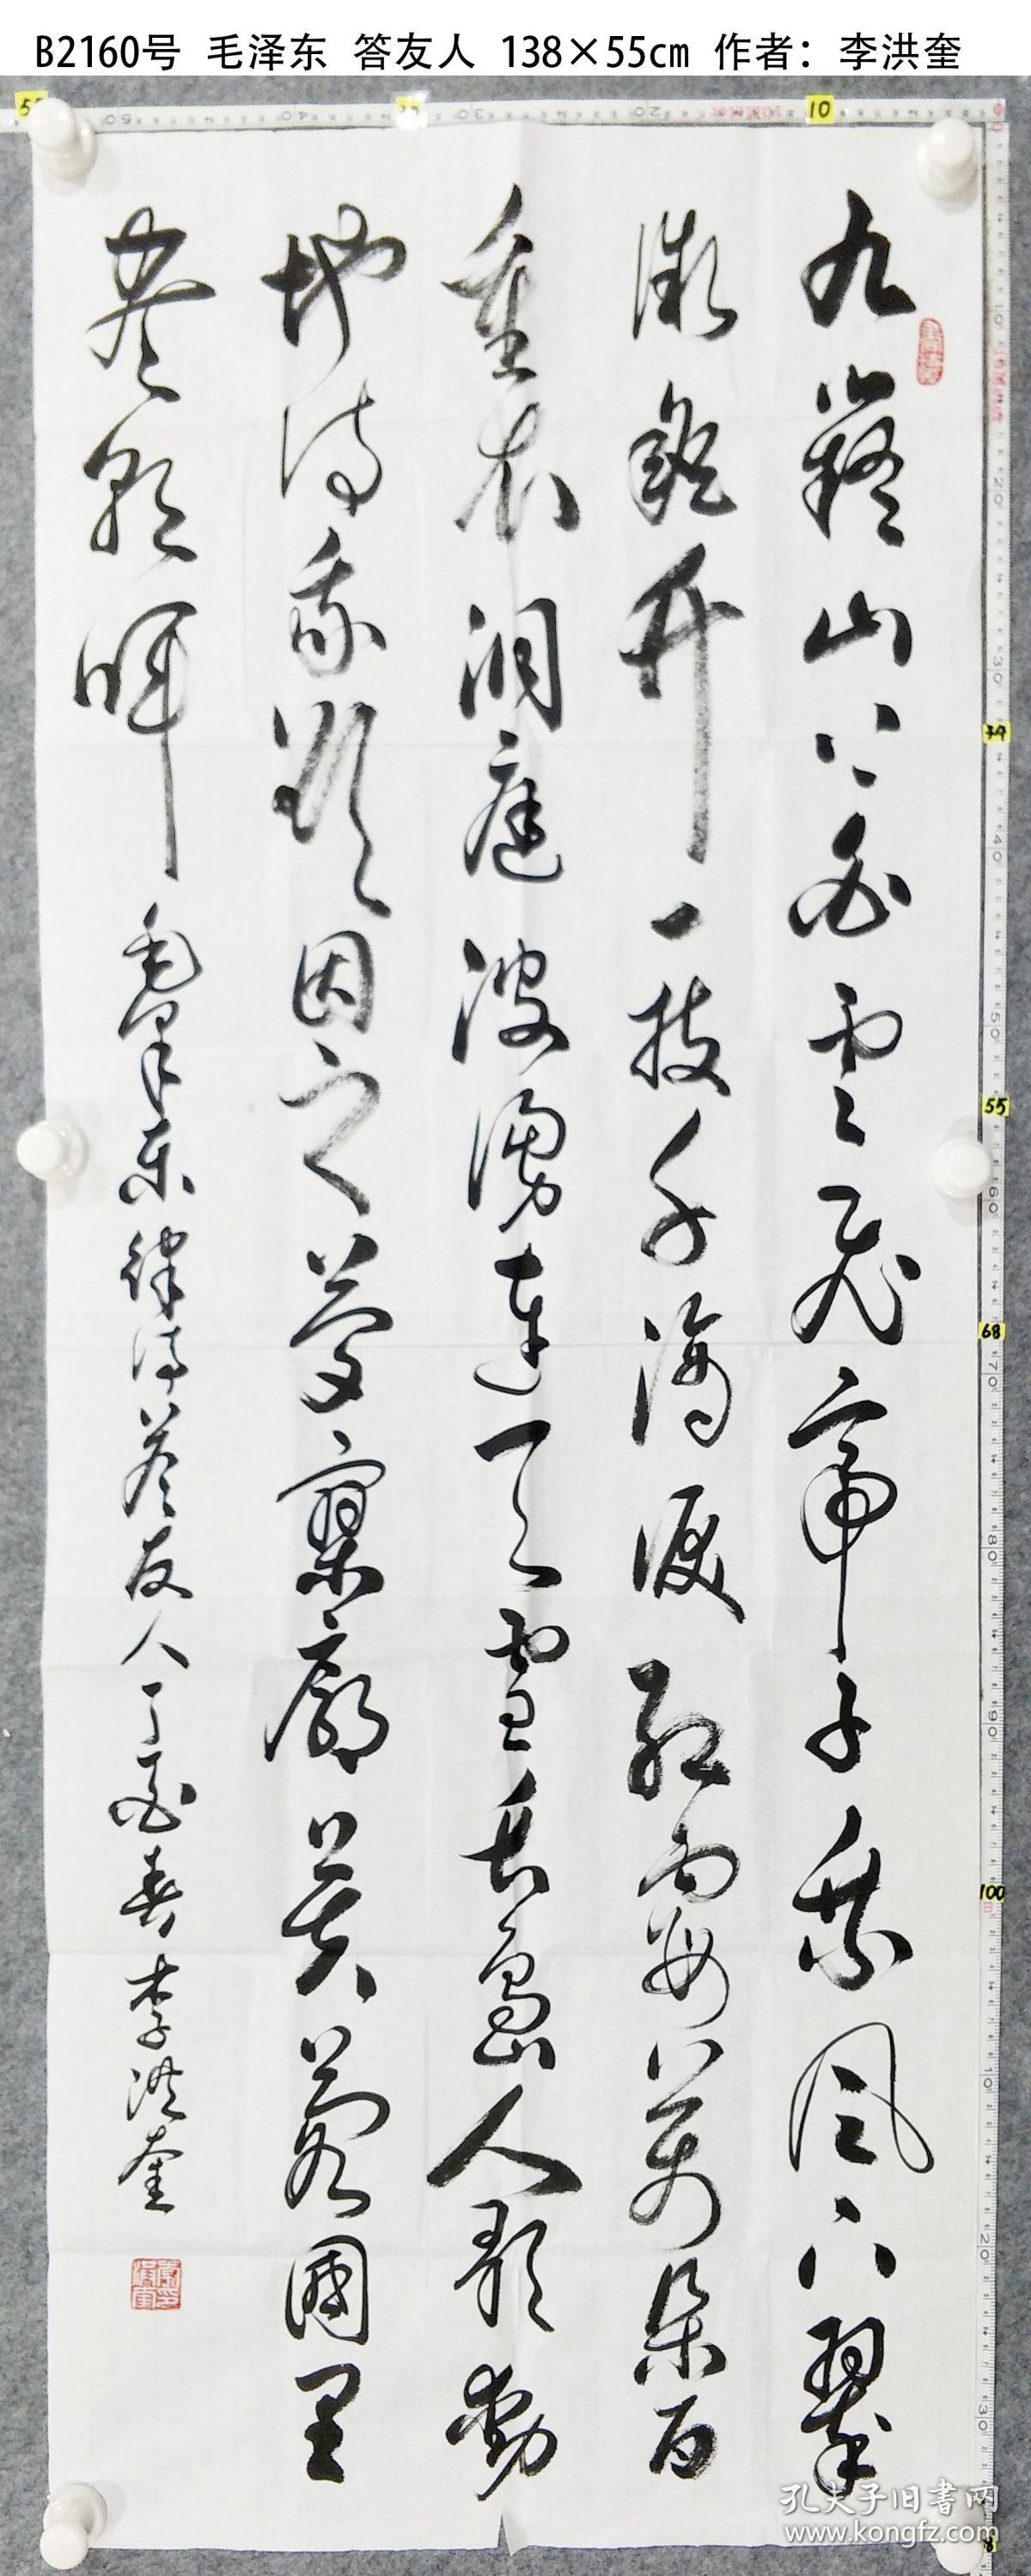 B2160号 毛泽东 答友人 138×55cm 作者：李洪奎
九嶷山上白雲飛帝子乘風下翠
微斑竹一枝千滴淚紅霞萬朵百
重衣洞庭波湧連天雪長島人歌動
地詩我欲因之夢寥廓芙蓉國里
盡朝暉 毛澤東律詩答友人丁酉春李洪奎
孔夫子旧书网
www.kongfz.com